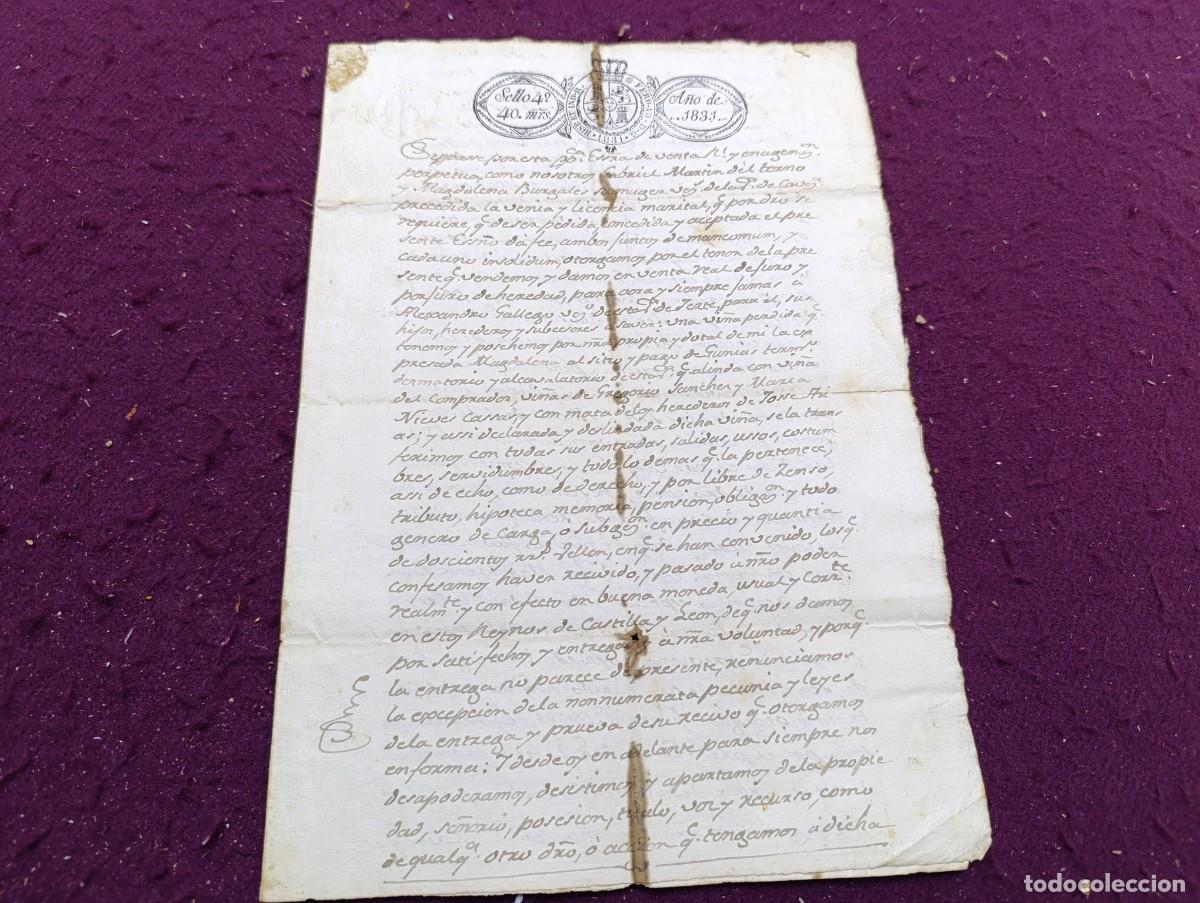 Sello 4º
40. mrs
HISP. ET IND. R.
1831
Año de
1831.
Sepase por esta pp.ca Essra de venta Rl. y enagenon
perpetua, como nosotros Gabriel Martin del torno
y Magdalena Burgales su muger vejs de la Va. de Cavs.
precedida la venia y licencia marital, q. por dro se
requiere, q. de ser pedida, concedida y aceptada el pre
sente Essno dá fee, ambos juntos de mancomum, y
cada uno insolidum, otorgamos por el tenor de la pre
sente q. vendemos y damos en venta real de juro y
por juro de heredad, para aora y siempre jamas á
Alexandro Gallego vej. de esta Va. de Jerte, para él, sus
hijos, herederos y subcesores á saver: una viña perdida q.
tenemos y posehemos por nra propia y dotal de mi la ex
presada Magdalena al sitio y pago de Gunias termo
dermatorio y alcavalatorio de esta Va. q. alinda con viña
del comprador, viñas de Gregorio Sanchez y Maria
Nieves Cassas, y con mata de los herederos de Josse Ari
as; y assi declarada y deslindada dicha viña, se la trans
ferimos con todas sus entradas, salidas, ussos, costum
bres, servidumbres, y todo lo demas q. la pertenece,
assi de echo, como de derecho, y por libre de Zenso,
tributo, hipoteca memoria, pension, obligaon. y todo
genero de Carga, ó subgon. en precio y quantia
de doscientos rrs. Vellon, en q. se han convenido, los q.
confesamos haver recivido, y pasado á nro poder
realmte. y con efecto en buena moneda, usual y Corrte.
en estos Reynos de Castilla y Leon, de q. nos damos
por satisfechos y entregados á nra voluntad, y porq.
la entrega no parece de presente, renunciamos
la excepcion de la non numerata pecunia y leyes
de la entrega y prueva de su recivo q. otorgamos
en forma: Y desde oy en adelante para siempre nos
desapoderamos, desistimos y apartamos de la propie
dad, señorio, posesion, titulo, voz y recurso, como
de qualqa. otro dro, ó accion q. tengamos á dicha
todocoleccion